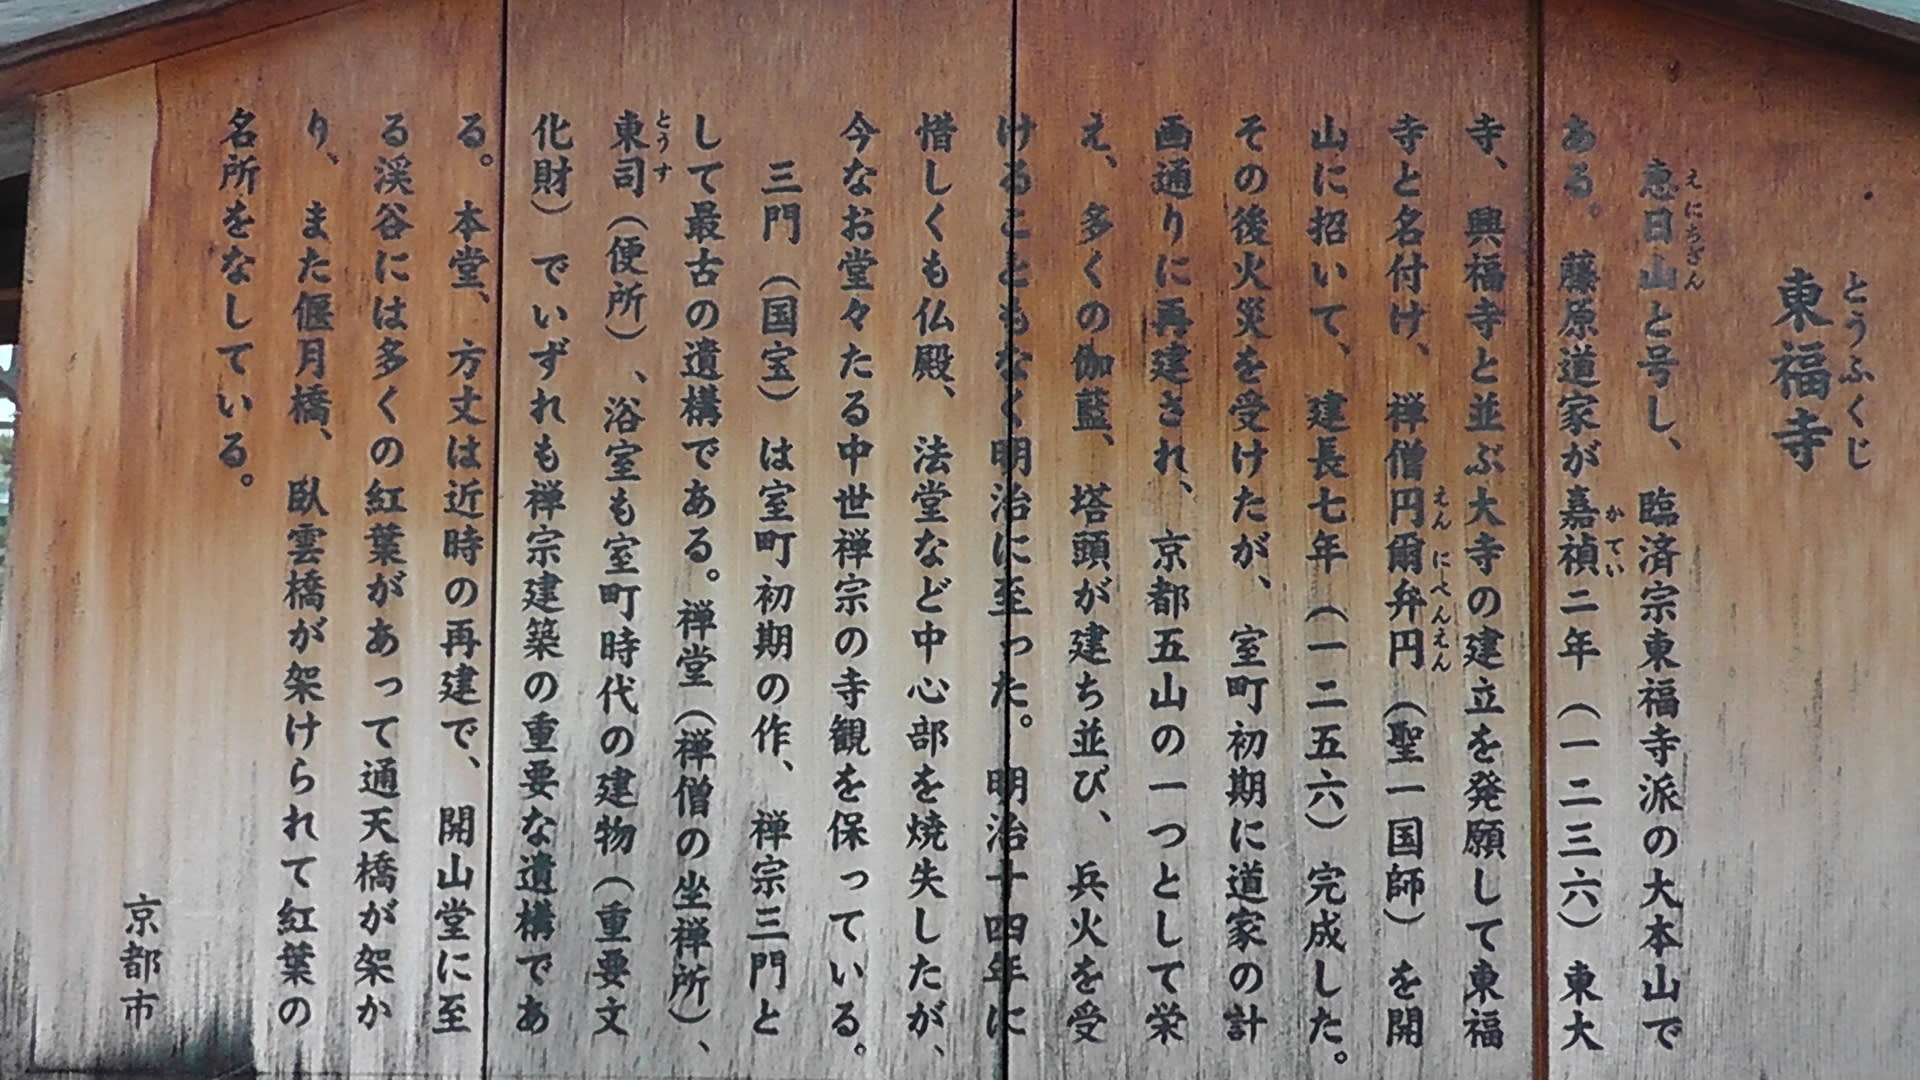 東福寺
とうふくじ
恵日山と号し、臨済宗東福寺派の大本山で
えにちざん
ある。藤原道家が嘉禎二年（一二三六）東大
かてい
寺、興福寺と並ぶ大寺の建立を発願して東福
寺と名付け、禅僧円爾弁円（聖一国師）を開
えんにべんえん
山に招いて、建長七年（一二五六）完成した。
その後火災を受けたが、室町初期に道家の計
画通りに再建され、京都五山の一つとして栄
え、多くの伽藍、塔頭が建ち並び、兵火を受
けることもなく明治に至った。明治十四年に
惜しくも仏殿、法堂など中心部を焼失したが、
今なお堂々たる中世禅宗の寺観を保っている。
三門（国宝）は室町初期の作、禅宗三門と
して最古の遺構である。禅堂（禅僧の坐禅所）、
東司（便所）、浴室も室町時代の建物（重要文
とうす
化財）でいずれも禅宗建築の重要な遺構であ
る。本堂、方丈は近時の再建で、開山堂に至
る渓谷には多くの紅葉があって通天橋が架か
り、また偃月橋、臥雲橋が架けられて紅葉の
名所をなしている。
京都市